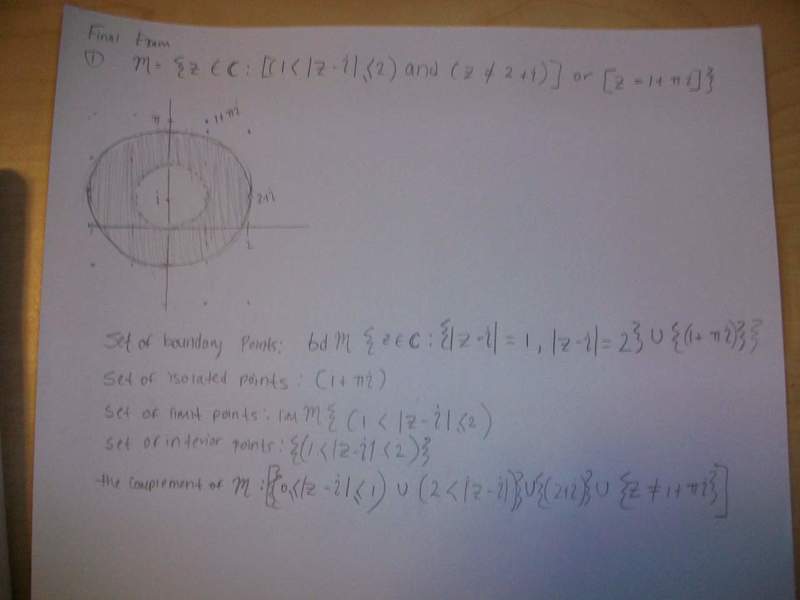 Final Exam
① M = {z ∈ C : [(1 < |z - i| ≤ 2) and (z ≠ 2+i)] or [z = 1+πi]}
π 1+πi
i 2+i
2
Set of boundary points: bd M {z ∈ C : {|z-i| = 1, |z-i| = 2} ∪ {(1+πi)}}
Set of isolated points: (1+πi)
Set of limit points: lm M {(1 < |z-i| ≤ 2)
Set of interior points: {(1 < |z-i| < 2)}
the complement of M : [{0 ≤ |z-i| ≤ 1) ∪ (2 < |z-i|)} ∪ {(2+i)} ∪ {z ≠ 1+πi}]